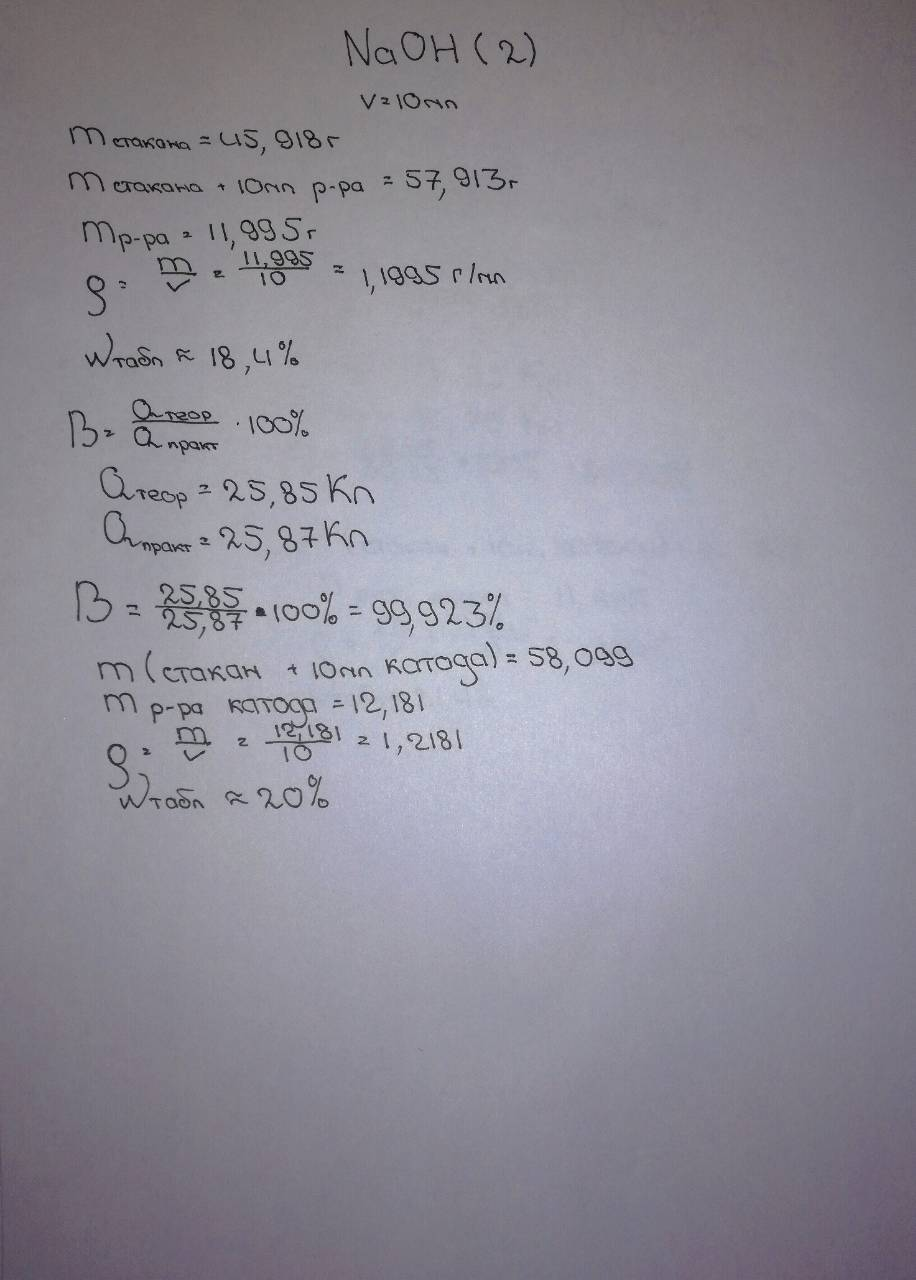 NaOH (2)
V=10мл
m стакана = 45,918г
m стакана + 10мл р-ра = 57,913г
m р-ра = 11,995г
ρ = m/V = 11,995/10 = 1,1995 г/мл
W табл ≈ 18,4%
B = Qтеор/Qпракт · 100%
Qтеор = 25,85 Кл
Qпракт = 25,87 Кл
B = 25,85/25,87 · 100% = 99,923%
m (стакан + 10мл катода) = 58,099
m р-ра катода = 12,181
ρ = m/V = 12,181/10 = 1,2181
W табл ≈ 20%